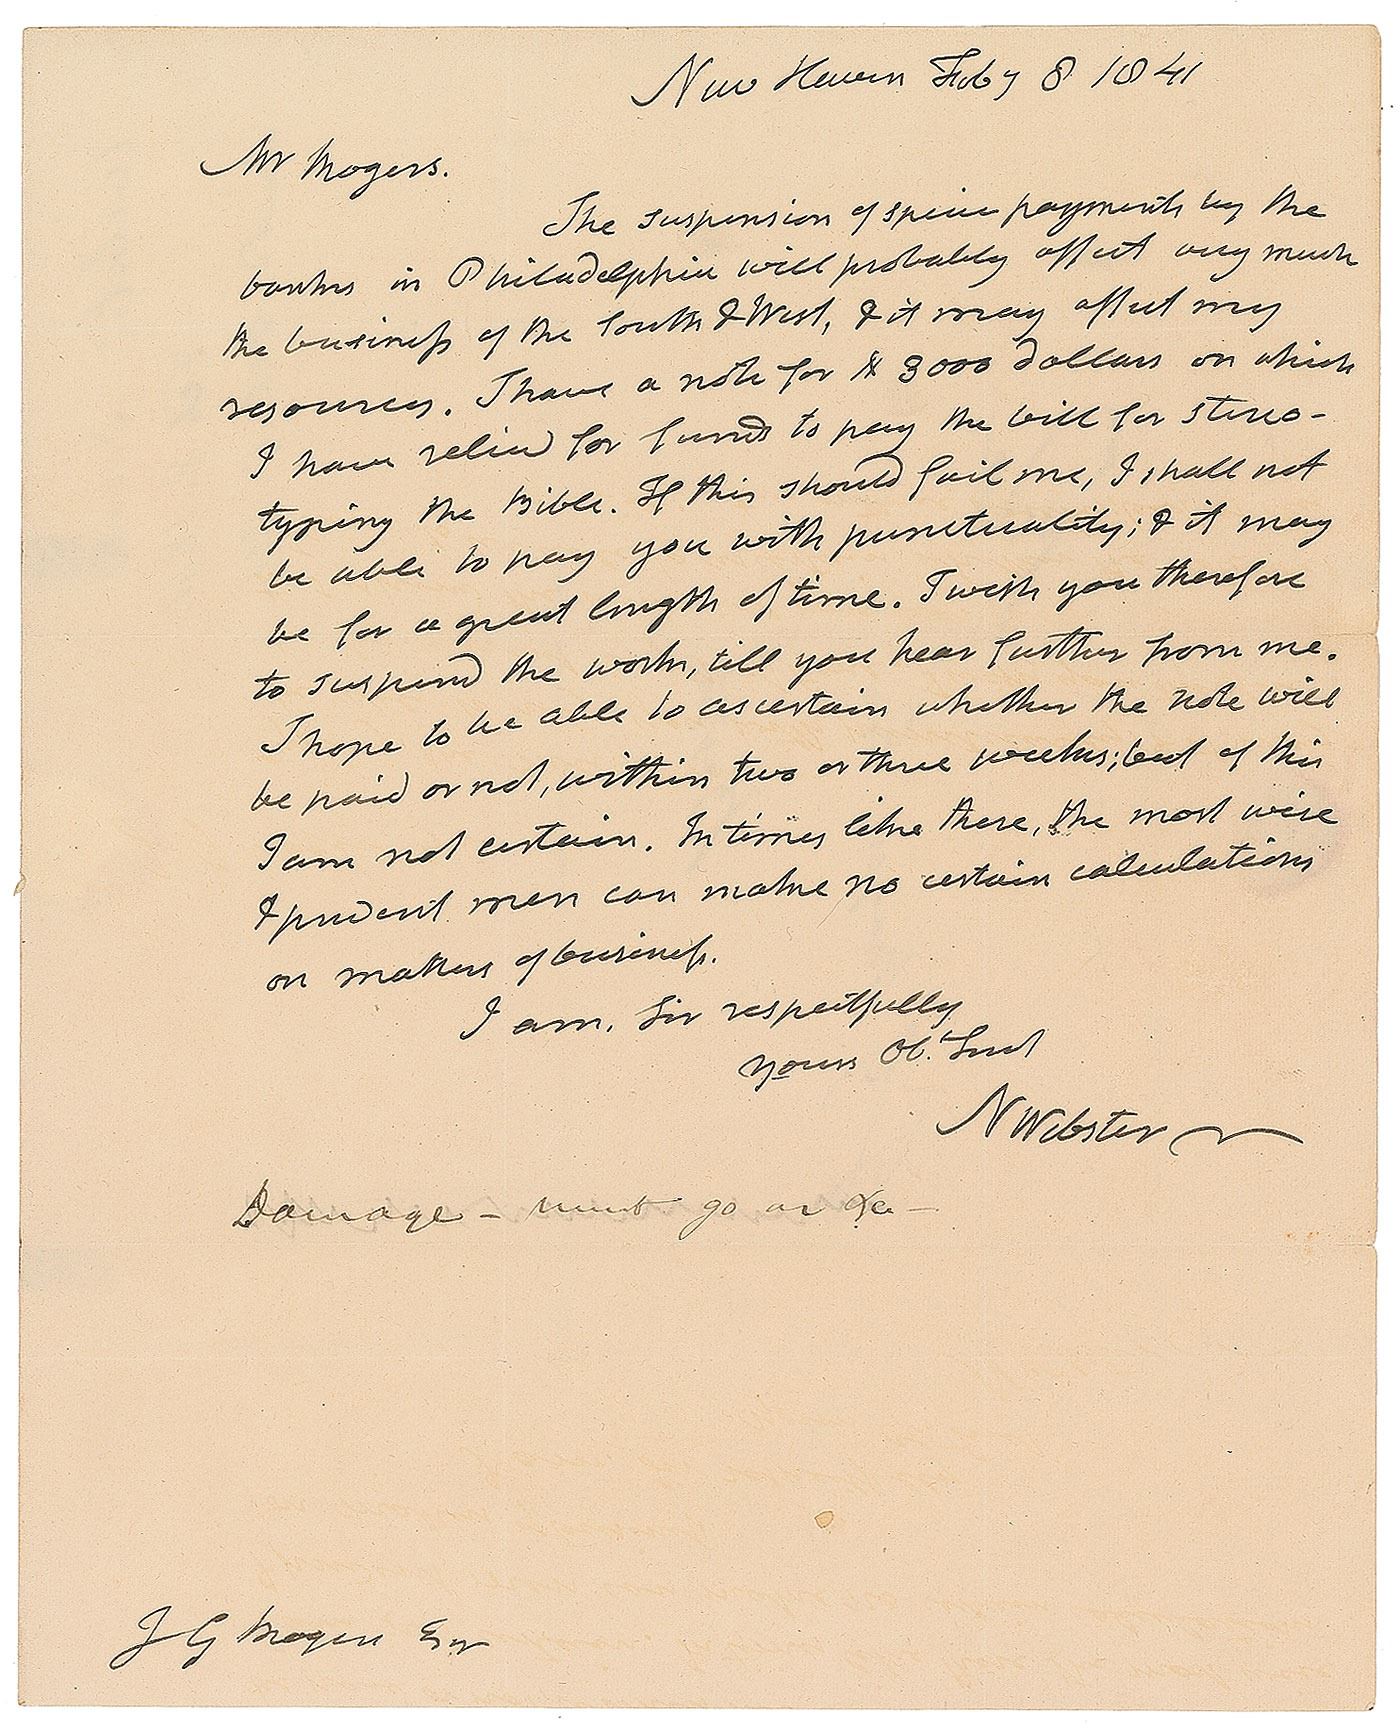 New Haven Feby 8 1841
Mr Mogers.
The suspension of specie payments by the
banks in Philadelphia will probably affect very much
the business of the South & West, & it may affect my
resources. I have a note for $ 3000 dollars on which
I have relied for funds to pay the bill for stereo-
typing the Bible. If this should fail me, I shall not
be able to pay you with punctuality; & it may
be for a great length of time. I wish you therefore
to suspend the work, till you hear further from me.
I hope to be able to ascertain whether the note will
be paid or not, within two or three weeks; but of this
I am not certain. In times like these, the most wise
& prudent men can make no certain calculations
on matters of business.
I am, Sir respectfully
yours Obt. Servt
N Webster
Damage - must go on
J G Esqr